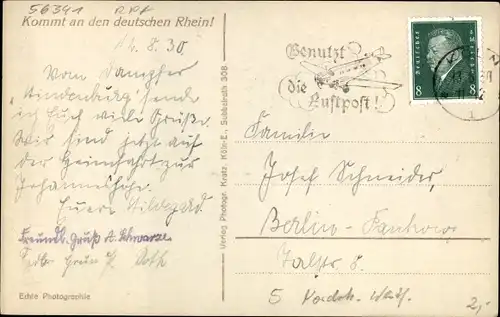 56341 RPf
Kommt an den deutschen Rhein!
12.8.30
Vom Dampfer
"Hindenburg" sende
ich Euch viele Grüße.
Wir sind jetzt auf
der Heimfahrt zur
Johanneshöhe.
Eure Hildegard
Freundl. Gruß A. Schwarze
Echte Photographie
Verlag Photogr. Kratz, Köln-E., Subbelrath 308
Benutzt
die
Luftpost!
DEUTSCHES REICH
8 8
Familie
Josef Schneider,
Berlin-Pankow
Talstr. 8.
2,-